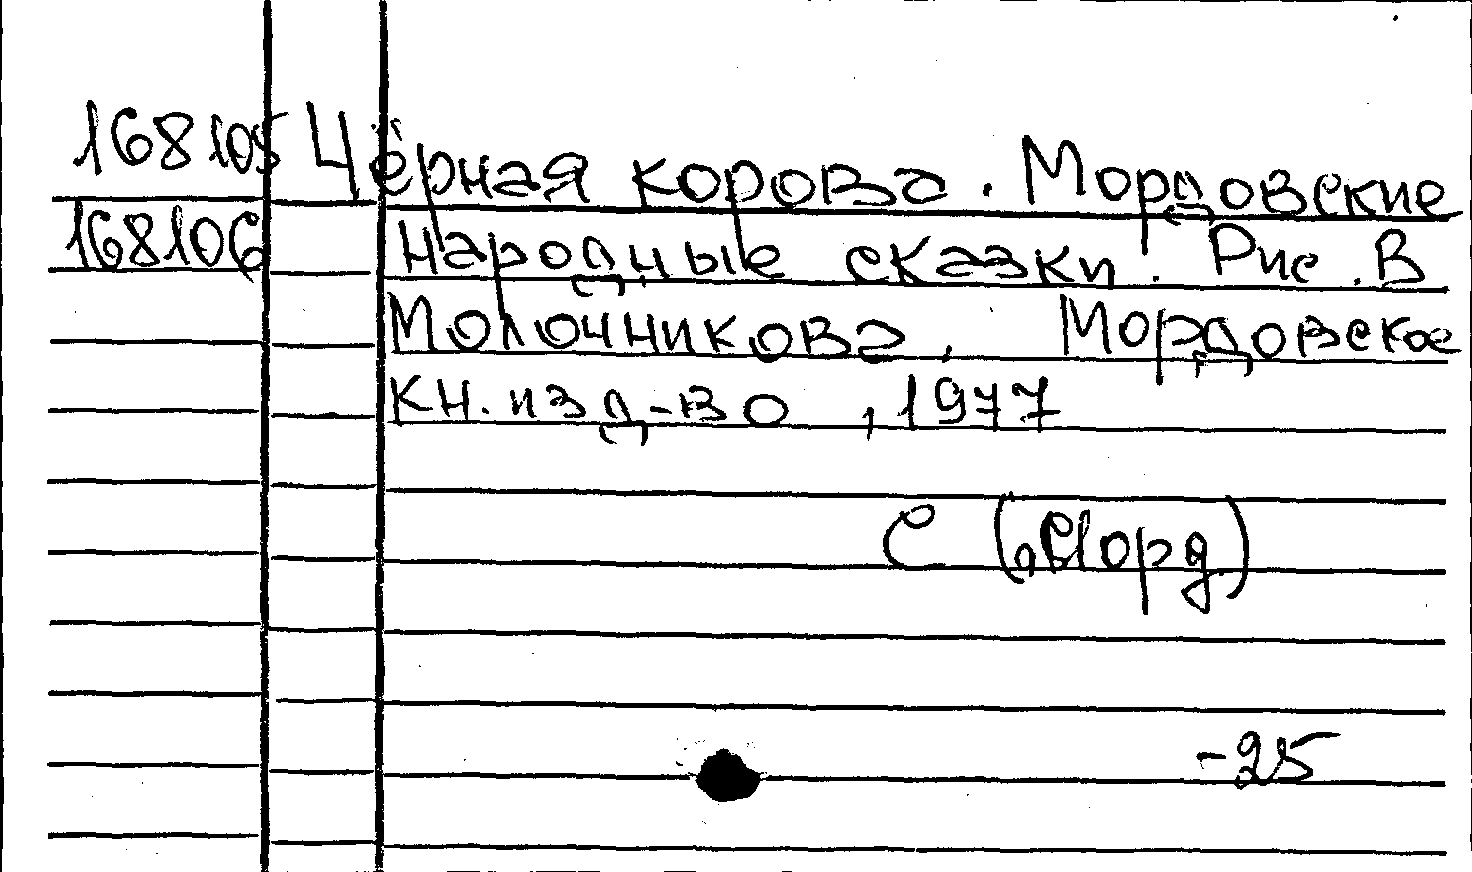 168105 Чёрная корова. Мордовские
168106 народные сказки. Рис. В
Молочникова. Мордовское
кн. изд-во, 1977
С (Морд)
-25